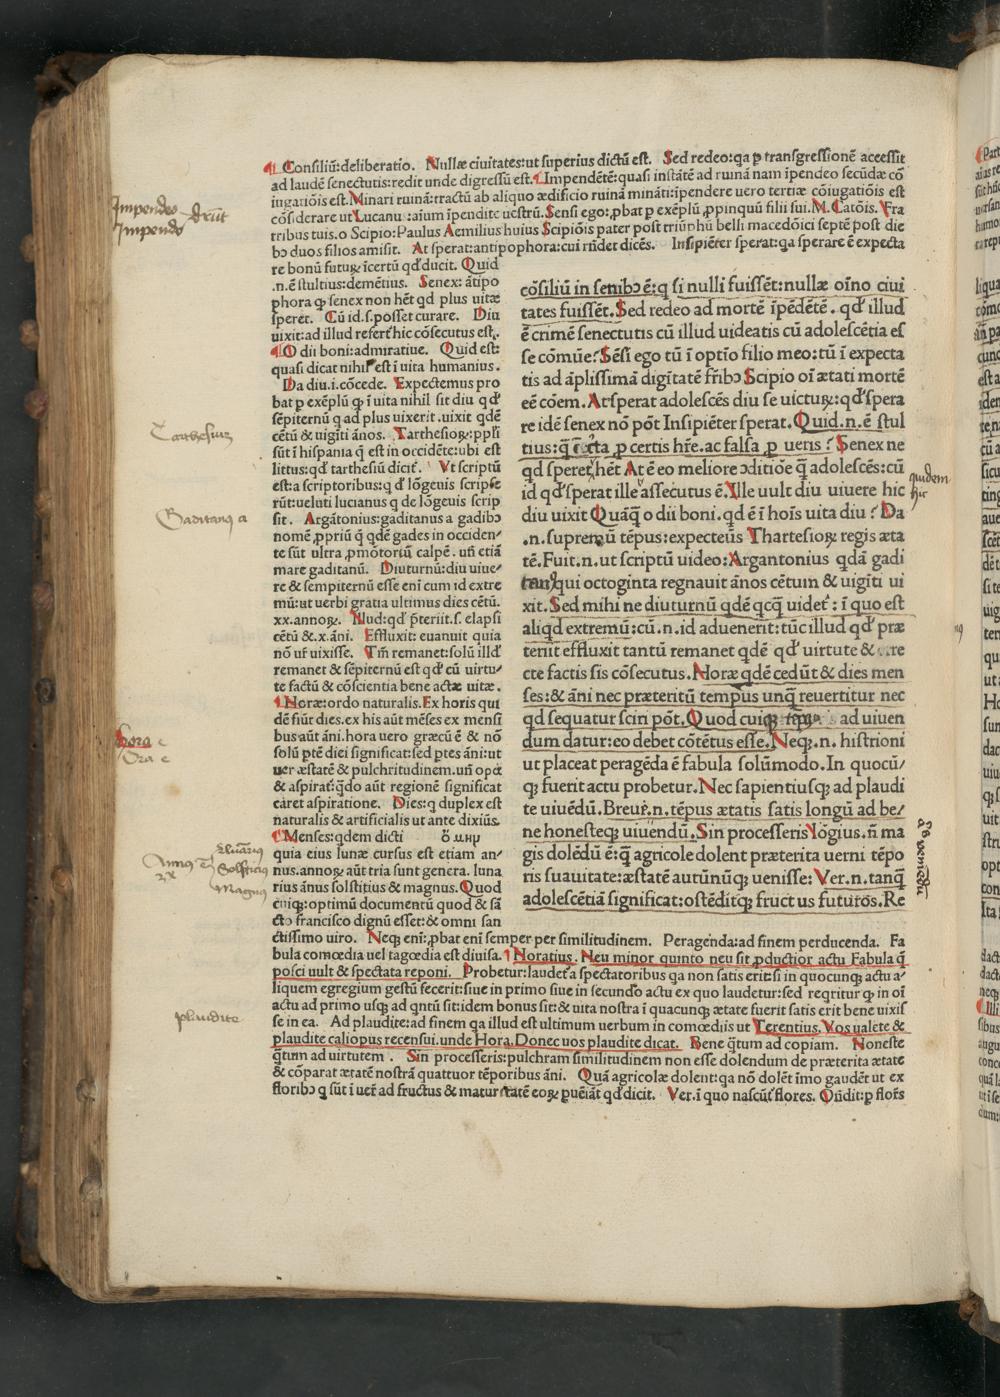 Consiliũ:deliberatio. Nullæ ciuitates:ut superius dictũ est. Sed redeo:qa p transgressionẽ accessit
ad laudẽ senectutis:redit unde digressũ est. Impendẽtẽ:quasi instãtẽ ad ruinã nam ĩpendeo secũdæ cõ
iugatiõis est. Minari ruinã:tractũ ab aliquo ædificio ruinã minãti:ĩpendere uero tertiæ cõiugatiõis est
cõsiderare ut Lucanu :aium ĩpendite uestrũ. Sensi ego:pbat p exẽplũ ppinquũ filii sui. M. Catõis. Fra
tribus tuis.o Scipio:Paulus Aemilius huius Scipiõis pater post triũphũ belli macedõici septẽ post die
bꝰ duos filios amisit. At sperat:antipophora:cui rñdet dicẽs. Insipiẽter sperat:qa sperare ẽ expecta
re bonũ futuꝝ ĩcertũ qđ ducit. Quid
.n.ẽ stultius:demẽtius. Senex: ãtipo
phora ꝙ senex non hẽt qd plus uitæ
speret. Cũ id.s.posset curare. Diu
uixit:ad illud refert hic cõsecutus est.
O dii boni:admiratiue. Quid est:
quasi dicat nihil est ĩ uita humanius.
Da diu.i.cõcede. Expectemus pro
bat p exẽplũ ꝙ ĩ uita nihil sit diu qđ
sẽpiternũ q ad plus uixerit .uixit qdẽ
cẽtũ & uigĩti ãnos. Tarthesioꝝ:ppli
sũt ĩ hispania q̃ est in occidẽte:ubi est
littus:qđ tarthesiũ dicit̃. Vt scriptũ
est:a scriptoribus:q đ lõgeuis scripse
rũt:ueluti lucianus q de lõgeuis scrip
sit. Argãtonius:gaditanus a gadibꝰ
nomẽ ppriũ q̃ qdẽ gades in occiden/
te sũt ultra pmõtoriũ calpẽ. uñ etiã
mare gaditanũ. Diuturnũ:diu uiue/
re & sempiternũ esse enĩ cum id extre
mũ:ut uerbi gratia ultimus dies cẽtũ.
xx.annoꝝ. Illud:qđ p̃teriit.s. elapsi
cẽtũ &.x.ãni. Effluxit: euanuit quia
nõ ur̃ uixisse. Tm̃ remanet:solũ illđ
remanet & sẽpiternũ est qđ cũ uirtu/
te factũ & cõscientia bene actæ uitæ.
Horæ:ordo naturalis. Ex horis qui
dẽ fiũt dies.ex his aũt mẽses ex mensi
bus aũt ãni.hora uero græcũ ẽ & nõ
solũ ptẽ diei significat:sed ptes ãni:ut
uer æstatẽ & pulchritudinem.uñ opa
& aspirat̃:q̃do aũt regionẽ significat
caret aspiratione. Dies:q duplex est
naturalis & artificialis ut ante dixiũs.
Menses:qdem dicti ὁ μην
quia eius lunæ cursus est etiam an/
nus.annoꝝ aũt tria sunt genera. luna
rius ãnus solstitius & magnus. Quod
cuiqꝫ:optimũ documentũ quod & sã
ctꝰ francisco dignũ esset:& omni san
ctissimo uiro. Neqꝫ enĩ:pbat enĩ semper per similitudinem. Peragenda:ad finem perducenda. Fa
bula comœdia uel tragœdia est diuisa. Noratius. Neu minor quinto neu sit pductior actu Fabula q̃
posci uult & spectata reponi. Probetur:laudet̃ a spectatoribus qa non satis erit:si in quocunqꝫ actu a/
liquem egregium gestũ fecerit:siue in primo siue in secundo actu ex quo laudetur:sed reqritur ꝙ in oĩ
actu ad primo usqꝫ ad qntũ sit:idem bonus sit:& uita nostra ĩ quacunqꝫ ætate fuerit satis erit bene uixis
se in ea. Ad plaudite:ad finem qa illud est ultimum uerbum in comœdiis ut Terentius. Vos ualete &
plaudite caliopus recensui.unde Hora. Donec uos plaudite dicat. Bene q̃tum ad copiam. Honeste
q̃tum ad uirtutem . Sin processeris:pulchram similitudinem non esse dolendum de præterita ætate
& cõparat ætatẽ nostrã quattuor tẽporibus ãni. Quã agricolæ dolent:qa nõ dolẽt ĩmo gaudẽt ut ex
floribꝰ q sũt ĩ uer̃ ad fructus & maturitatẽ eoꝝ puẽiãt qđ dicit. Ver.ĩ quo nascũt̃ flores. Oñdit:p flor̃s
cõsiliũ in senibꝰ ẽ:q si nulli fuissẽt:nullæ oĩno ciui
tates fuissẽt. Sed redeo ad mortẽ ĩpẽdẽtẽ . qđ illud
ẽ crimẽ senectutis cũ illud uideatis cũ adolescẽtia es
se cõmũe? Sẽsi ego tũ ĩ optĩo filio meo:tũ ĩ expecta
tis ad ãplissimã digĩtatẽ fr̃ibꝰ Scipio oĩ ætati mortẽ
eẽ cõem. At sperat adolescẽs diu se uicturꝝ:qđ spera
re idẽ senex nõ põt Insipiẽter sperat. Quid.n.ẽ stul
tius:q̃ ĩcerta p certis hr̃e.ac falsa p ueris ? Senex ne
qd speret hẽt At ẽ eo meliore ↄditiõe q̃ adolescẽs:cũ
id qđ sperat ille assecutus ẽ. Ille uult diu uiuere hic
diu uixit Quãq̃ o dii boni.qđ ẽ ĩ hoĩs uita diu ? Da
.n. supremũ tẽpus:expecteũs Tharthesioꝝ regis æta
tẽ. Fuit.n.ut scriptũ uideo:Argantonius qdã gadi
tanꝰ qui octoginta regnauit ãnos cẽtum & uigĩti ui
xit. Sed mihi ne diuturnũ qdẽ qcq̃ uidet̃ : ĩ quo est
aliqd extremũ:cũ.n.id aduenerit:tũc illud qđ præ
teriit effluxit tantũ remanet qdẽ qđ uirtute &
cte factis sis cõsecutus. Horæ qdẽ cedũt & dies men
ses:& ãni nec præteritũ tempus unq̃ reuertitur nec
qd sequatur sciri põt. Quod cuiqꝫ ad uiuen
dum datur:eo debet cõtẽtus esse. Neqꝫ.n. histrioni
ut placeat peragẽda ẽ fabula solũmodo. In quocũ/
qꝫ fuerit actu probetur. Nec sapientiusqꝫ ad plaudi
te uiuẽdũ. Breue.n.tẽpus ætatis satis longũ ad be/
ne honesteqꝫ uiuendũ. Sin processeris lõgius.ñ ma
gis dolẽdũ ẽ:q̃ agricole dolent præterita uerni tẽpo
ris suauitate:æstatẽ autũnũqꝫ uenisse: Ver.n.tanq̃
adolescẽtiã significat:ostẽditqꝫ fructus futuros. Re
Impendeo
Impendo
Tarthesius
Gaditanꝰ a
hora
Ora
Annus
Lunariꝰ
Solsticiꝰ
Magnus
plaudite
quidem
hic